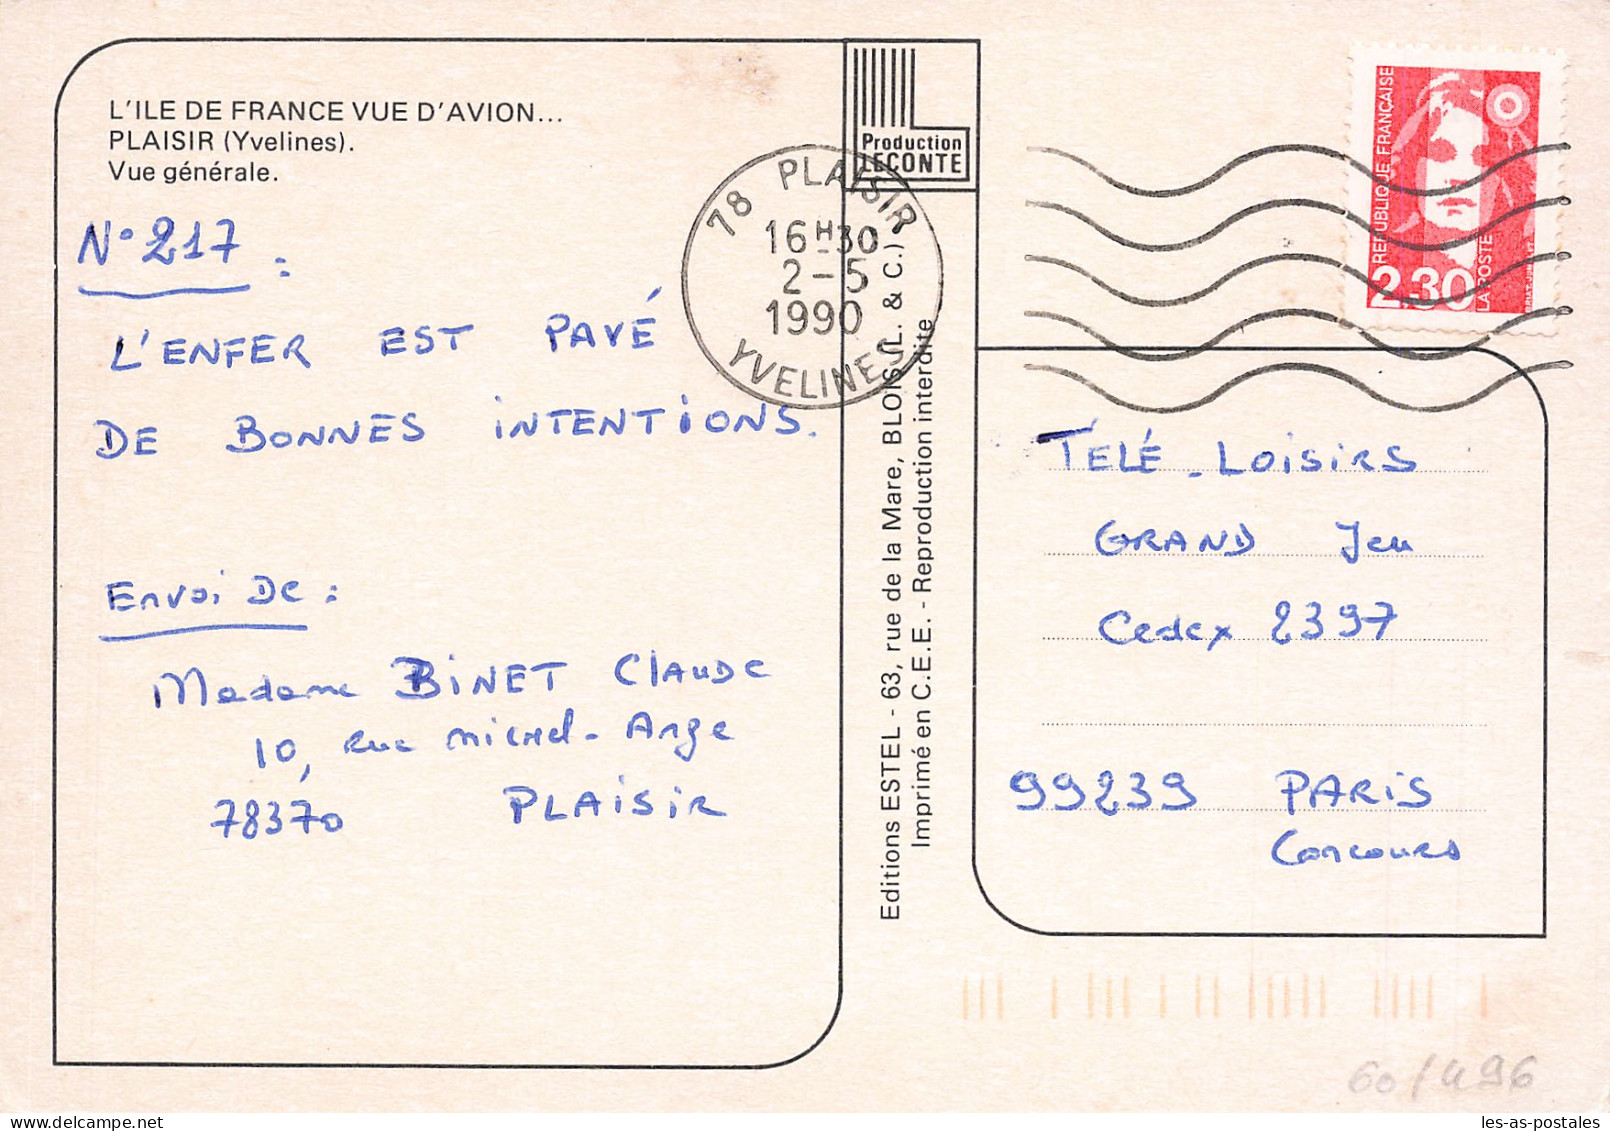 L'ILE DE FRANCE VUE D'AVION...
PLAISIR (Yvelines).
Vue générale.
N° 217 :
L'ENFER EST PAVÉ
DE BONNES INTENTIONS.
Envoi De :
Madame BINET Claude
10, rue Michel-Ange
78370 PLAISIR
Production
LECONTE
78 PLAISIR
16H30
2-5
1990
YVELINES
Editions ESTEL - 63, rue de la Mare, BLOIS (L. & C.)
Imprimé en C.E.E. - Reproduction interdite
REPUBLIQUE FRANÇAISE
2,30
LA POSTE
TÉLÉ-LOISIRS
GRAND Jeu
Cedex 2397
99239 PARIS
Concours
60/496
les-as-postales